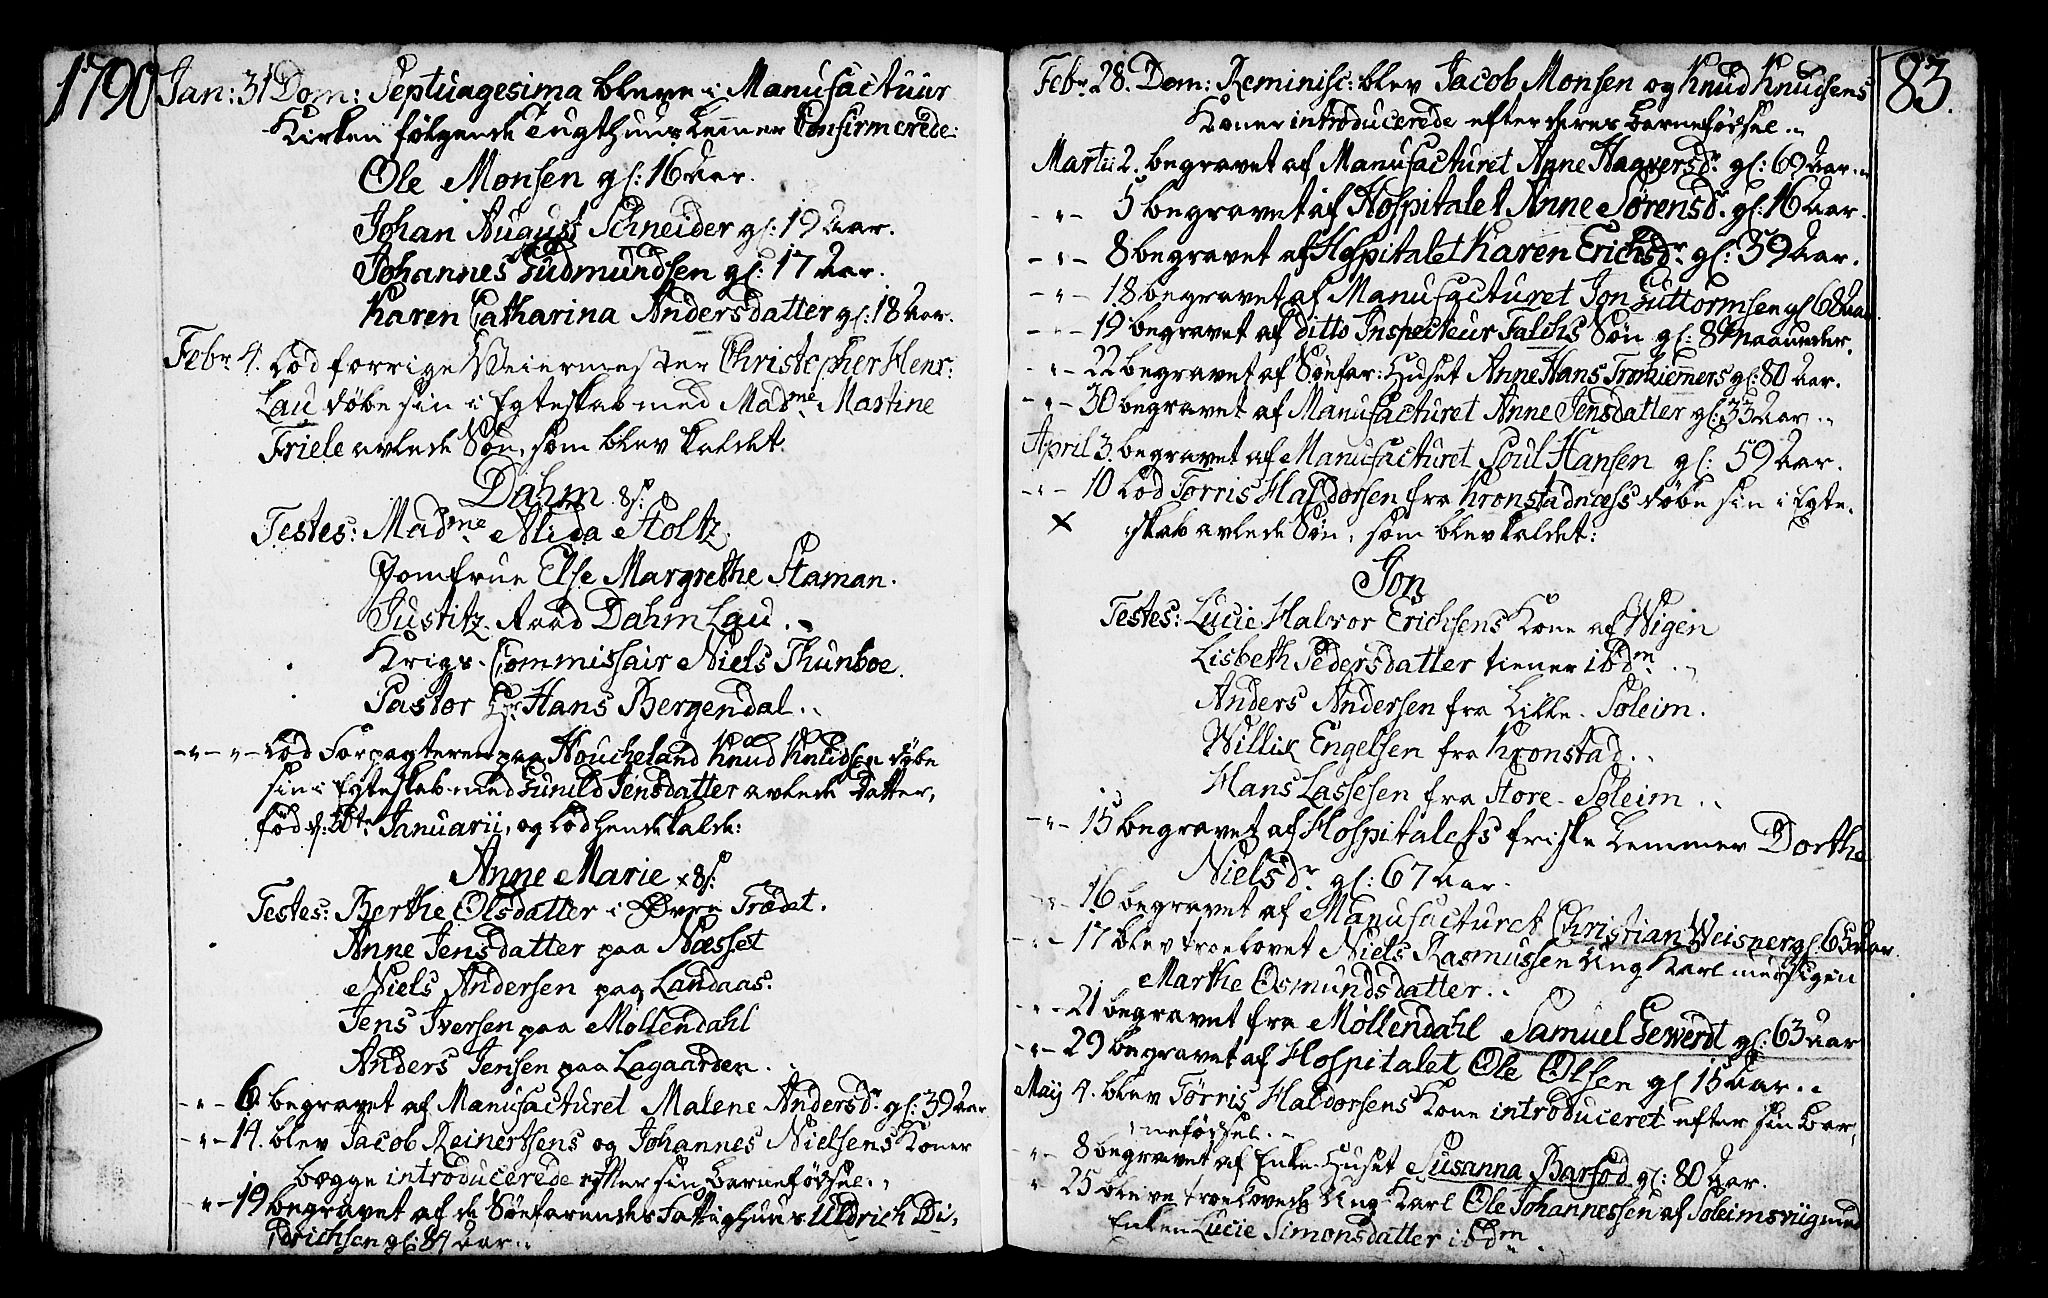 1790
Jan: 31 Dom: Septuagesima bleve i Manufactuur
Kirken følgende Tugthuus Lemmer Confirmerede:
Ole Monsen gl: 16 Aar.
Johan August Schneider gl: 19 Aar.
Johannes Gudmundsen gl: 17 Aar.
Karen Catharina Andersdatter gl: 18 Aar.
Febr. 4. Lod forrige Veiermester Christopher Henr:
Lau døbe sin i Egteskab med Madme Martine
Friele avlede Søn, som blev kaldet:
Dahm
Testes: Madme Alida Stoltz
Jomfrue Else Margrethe Staman.
Justitz Raad Dahm Lau.
Krigs-Commissair Niels Thunboe.
Pastor Hr Hans Bergendal.
-"-"- Lod Forpagteren paa Houcheland Knud Knudsen døbe
sin i Egteskab med Gunild Jensdatter avlede Datter,
fød d: Januarii, og lod hende kalde:
Anne Marie
Testes: Berthe Olsdatter i Øvre Trædet.
Anne Jensdatter paa Næsset
Niels Andersen paa Landaas:
Jens Iversen paa Møllendahl
Anders Jensen paa Lagaarden.
-"- 6 begravet af Manufacturet Malene Andersdr. gl: 39 Aar.
-"- 14. blev Jacob Reinertsens og Johannes Nielsens Koner
begge introducerede efter sin Barnefødsel.
-"- 19 begravet af de Søefarendes Fattighuus Uldrich Di-
drichsen gl: 84 Aar.
83.
Febr. 28. Dom: Reminisc: blev Jacob Monsen og Knud Knudsens
Koner introducerede efter deres Barnefødsel.
Martii 2. begravet af Manufacturet Anne Haaversdr. gl: 69 Aar.
-"- 5 begravet af Hospitalet Anne Sørensdr. gl: 16 Aar.
-"- 8 begravet af Hospitalet Karen Erichsdr. gl: 39 Aar.
-"- 18 begravet af Manufacturet Jon Guttormsen gl 68 Aar
-"- 19 begravet af ditto Inspecteur Falchs Søn gl: 84 Maaneder.
-"- 22 begravet af Søefar: Huset Anne Hans gl: 80 Aar.
-"- 30 begravet af Manufacturet Anne Jensdatter gl: 33 Aar.
April 3. begravet af Manufacturet Poul Hansen gl: 59 Aar.
-"- 10 Lod Torris Haldorsen fra Kronstadnæss døbe sin i Egte-
x skab avlede Søn, som blev kaldet:
Jon
Testes: Lucie Halvor Erichsens Kone af Wigen
Lisbeth Pedersdatter tiener ibdm.
Anders Andersen fra Lille-Soleim.
Willik Engelsen fra Kronstad.
Hans Lassesen fra Store-Soleim.
-"- 15 begravet af Hospitalets friske Lemmer Dorthe
Nielsdr. gl: 67 Aar.
-"- 16 begravet af Manufacturet Christian Weisner gl: 65 Aar.
-"- 17 blev troelovet Niels Rasmussen Ung Karl med Pigen
Marthe Osmundsdatter.
-"- 21 begravet fra Møllendahl Samuel Gewerdt gl: 63 Aar
-"- 29 begravet af Hospitalet Ole Olsen gl 15 Aar.
Maij 4. blev Tørris Haldorsens Kone introduceret efter sin Bar-
nefødsel.
-"- 8 begravet af Enke-Huset Susanna Barfod gl: 80 Aar.
" 25 bleve troelovede Ung Karl Ole Johannessen af Soleimsviig med
Enken Lucie Simonsdatter ibdm.